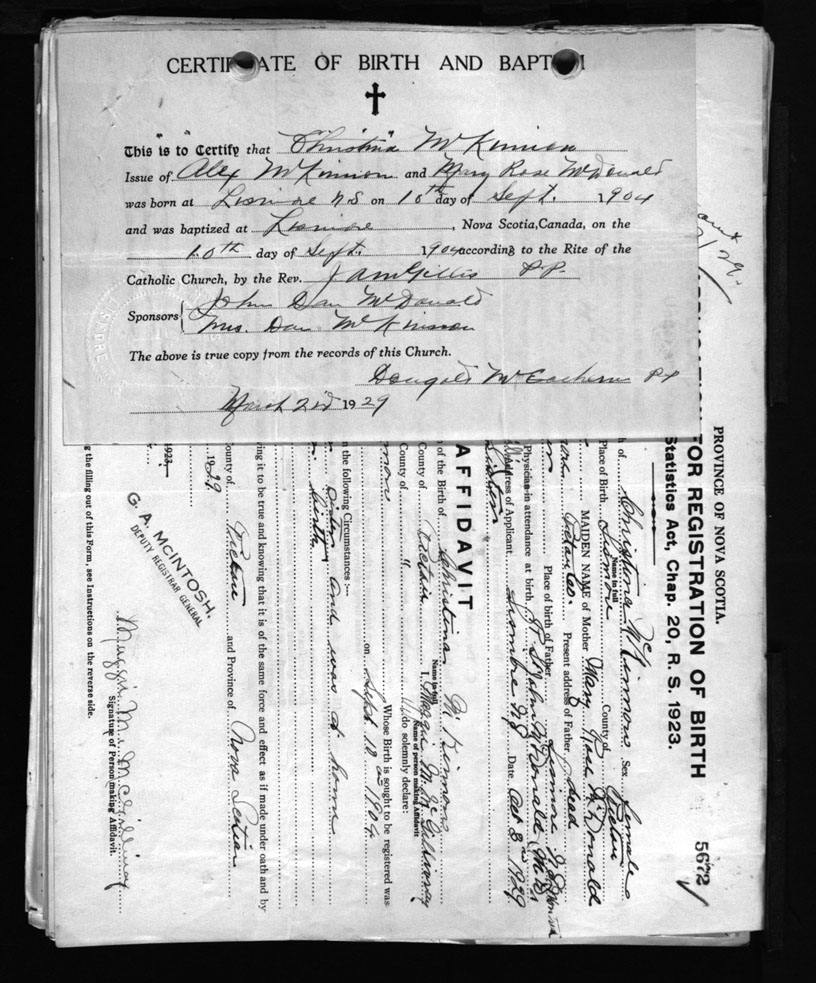 CERTIFICATE OF BIRTH AND BAPTISM
This is to Certify that "Christina" McKinnon
Issue of Alex McKinnon and Mary Rose McDonald
was born at Lismore N.S. on 10th day of Sept. 1904
and was baptized at Lismore, Nova Scotia, Canada, on the
10th day of Sept. 1904 according to the Rite of the
Catholic Church, by the Rev. J AMGillis P.P.
Sponsors John Dan McDonald
Mrs. Dan McKinnon
The above is true copy from the records of this Church.
Dougald McEachern PP
March 2nd 1929
PROVINCE OF NOVA SCOTIA.
FOR REGISTRATION OF BIRTH
Statistics Act, Chap. 20, R. S. 1923.
5672
Christina McKinnon Sex female
Name in full
Place of Birth Lismore County of Pictou
MAIDEN NAME of Mother Mary Rose McDonald
Pictou Co. Present address of Father dead
Place of birth of Father Lismore
Physician in attendance at birth
Address of Applicant Lismore N.S. Date Oct 3rd 1929
AFFIDAVIT
of the Birth of Christina McKinnon
Name in full
County of Pictou I, Maggie M. McGillivray
Name of person making Affidavit
County of " do solemnly declare:
Whose Birth is sought to be registered was
on Sept. 10 1904
in the following Circumstances:—
sister and was at home
birth.
ing it to be true and knowing that it is of the same force and effect as if made under oath and by
County of Pictou and Province of Nova Scotia
1929
1923.
G. A. McINTOSH.
DEPUTY REGISTRAR GENERAL
Maggie M. McGillivray
Signature of Person making Affidavit.
g the filling out of this Form, see Instructions on the reverse side.